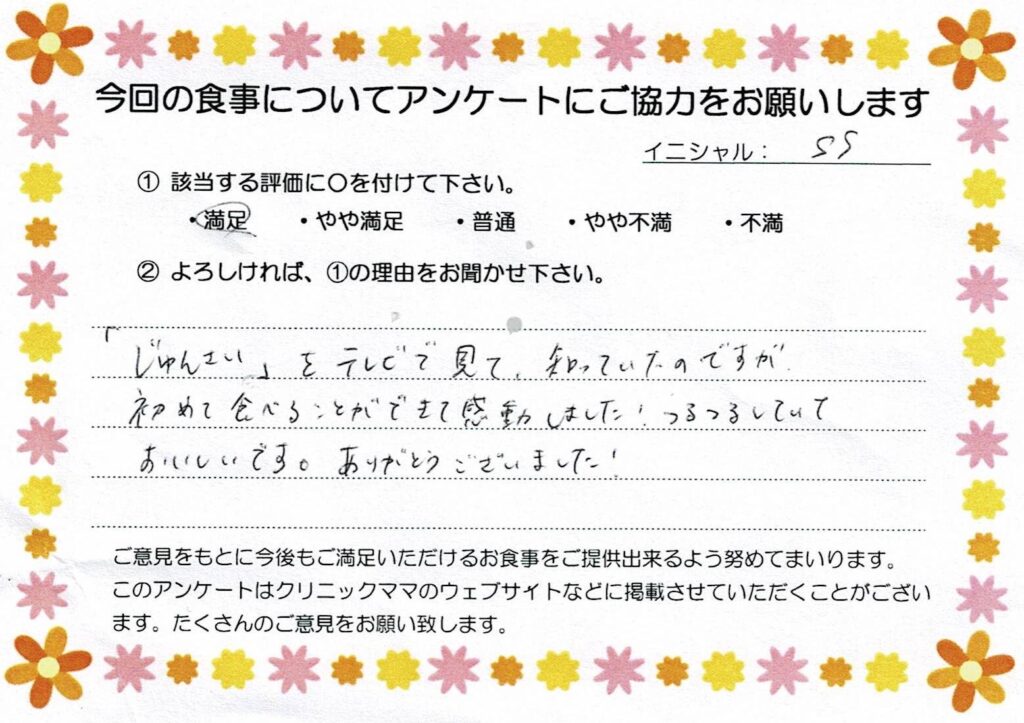 今回の食事についてアンケートにご協力をお願いします
イニシャル： SS
① 該当する評価に○を付けて下さい。
・満足 ・やや満足 ・普通 ・やや不満 ・不満
② よろしければ、①の理由をお聞かせ下さい。
「じゅんさい」をテレビで見て、知っていたのですが
初めて食べることができて感動しました！つるつるしていて
おいしいです。ありがとうございました！
ご意見をもとに今後もご満足いただけるお食事をご提供出来るよう努めてまいります。
このアンケートはクリニックママのウェブサイトなどに掲載させていただくことがござい
ます。たくさんのご意見をお願い致します。